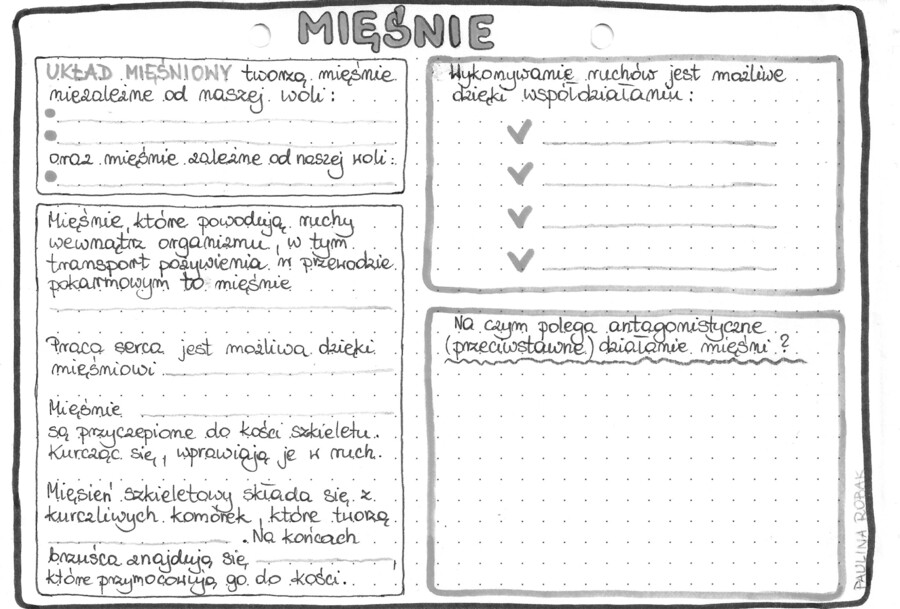 MIĘŚNIE
UKŁAD MIĘŚNIOWY tworzą mięśnie
niezależne od naszej woli:
oraz mięśnie zależne od naszej woli:
Mięśnie, które powodują ruchy
wewnątrz organizmu, w tym
transport pożywienia w przewodzie
pokarmowym to mięśnie
Praca serca jest możliwa dzięki
mięśniowi
Mięśnie
są przyczepione do kości szkieletu.
Kurcząc się, wprawiają je w ruch.
Mięsień szkieletowy składa się z
kurczliwych komórek, które tworzą
. Na końcach
brzuśca znajdują się ,
które przymocowują go do kości.
Wykonywanie ruchów jest możliwe
dzięki współdziałaniu:
Na czym polega antagonistyczne
(przeciwstawne) działanie mięśni?
PAULINA ROPAK